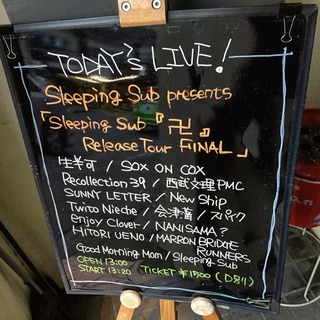 TODAY's LIVE!
Sleeping Sub presents
「Sleeping Sub『卍』
Release Tour FINAL」
生半可 / SOX ON COX
Recollection39 / 西武文理PMC
SUNNY LETTER / New Ship
Twito Nieche / 会津藩 / スパイク
enjoy Clover / NANISAMA?
HITORI UENO / MARRON BRIDGE
RUNNERS
Good Morning Mon / Sleeping Sub
OPEN 13:00
START 13:20 TICKET ¥1500 (D別)